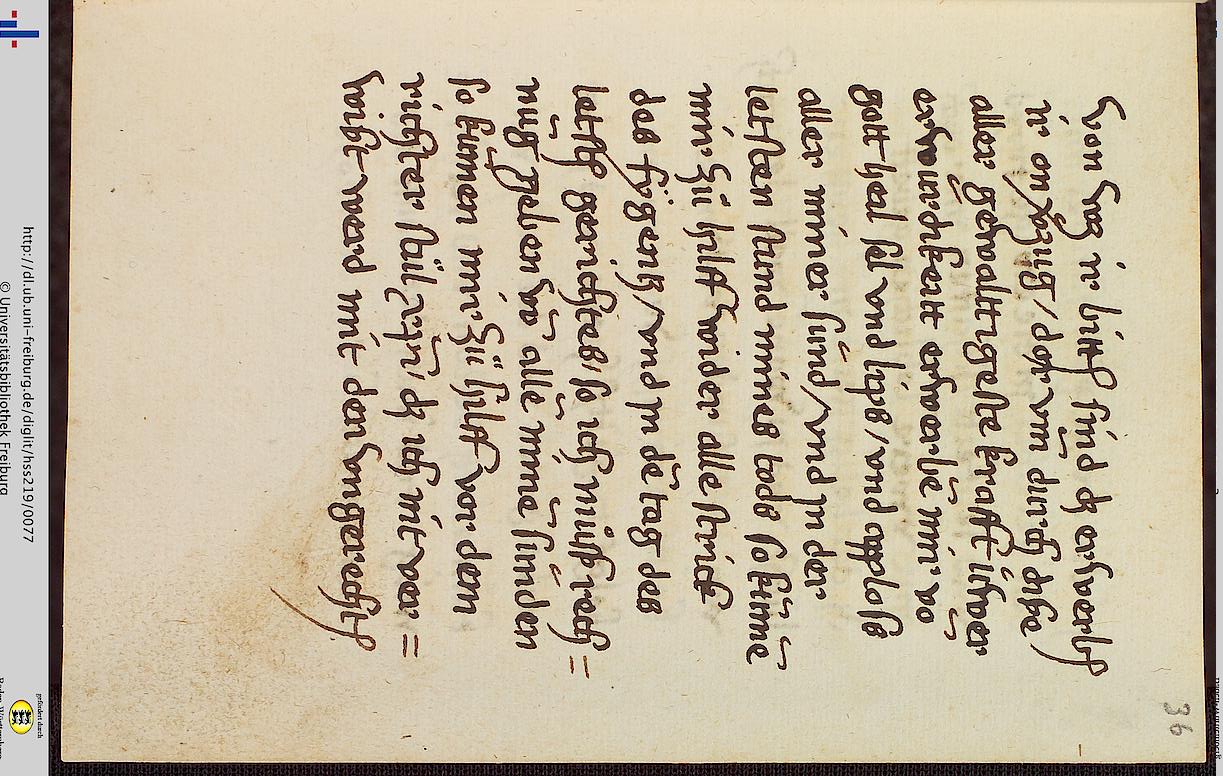 36
von vch ir hilff sind dz erwerbt
ir on zwyfel / dar vm durch dise
aller gewaltigeste krafft üwer
erwirdikeit erwerbē mir vō
gott heil sel vnd lips / vnd applos
aller miner sünd / vnd jn der
letsten stund mines tods so kūme
mir zü hilff wider alle strick
des fygents / vnd jn dē tag des
letst gerichtes / so ich müss rech=
nūg geben vō alle mine sünden
so kumen mir zü hilff vor dem
richter stül dz ich nit ver=
wist werd mit den vngerecht
http://dl.ub.uni-freiburg.de/diglit/hss219/0077
© Universitätsbibliothek Freiburg
gefördert durch